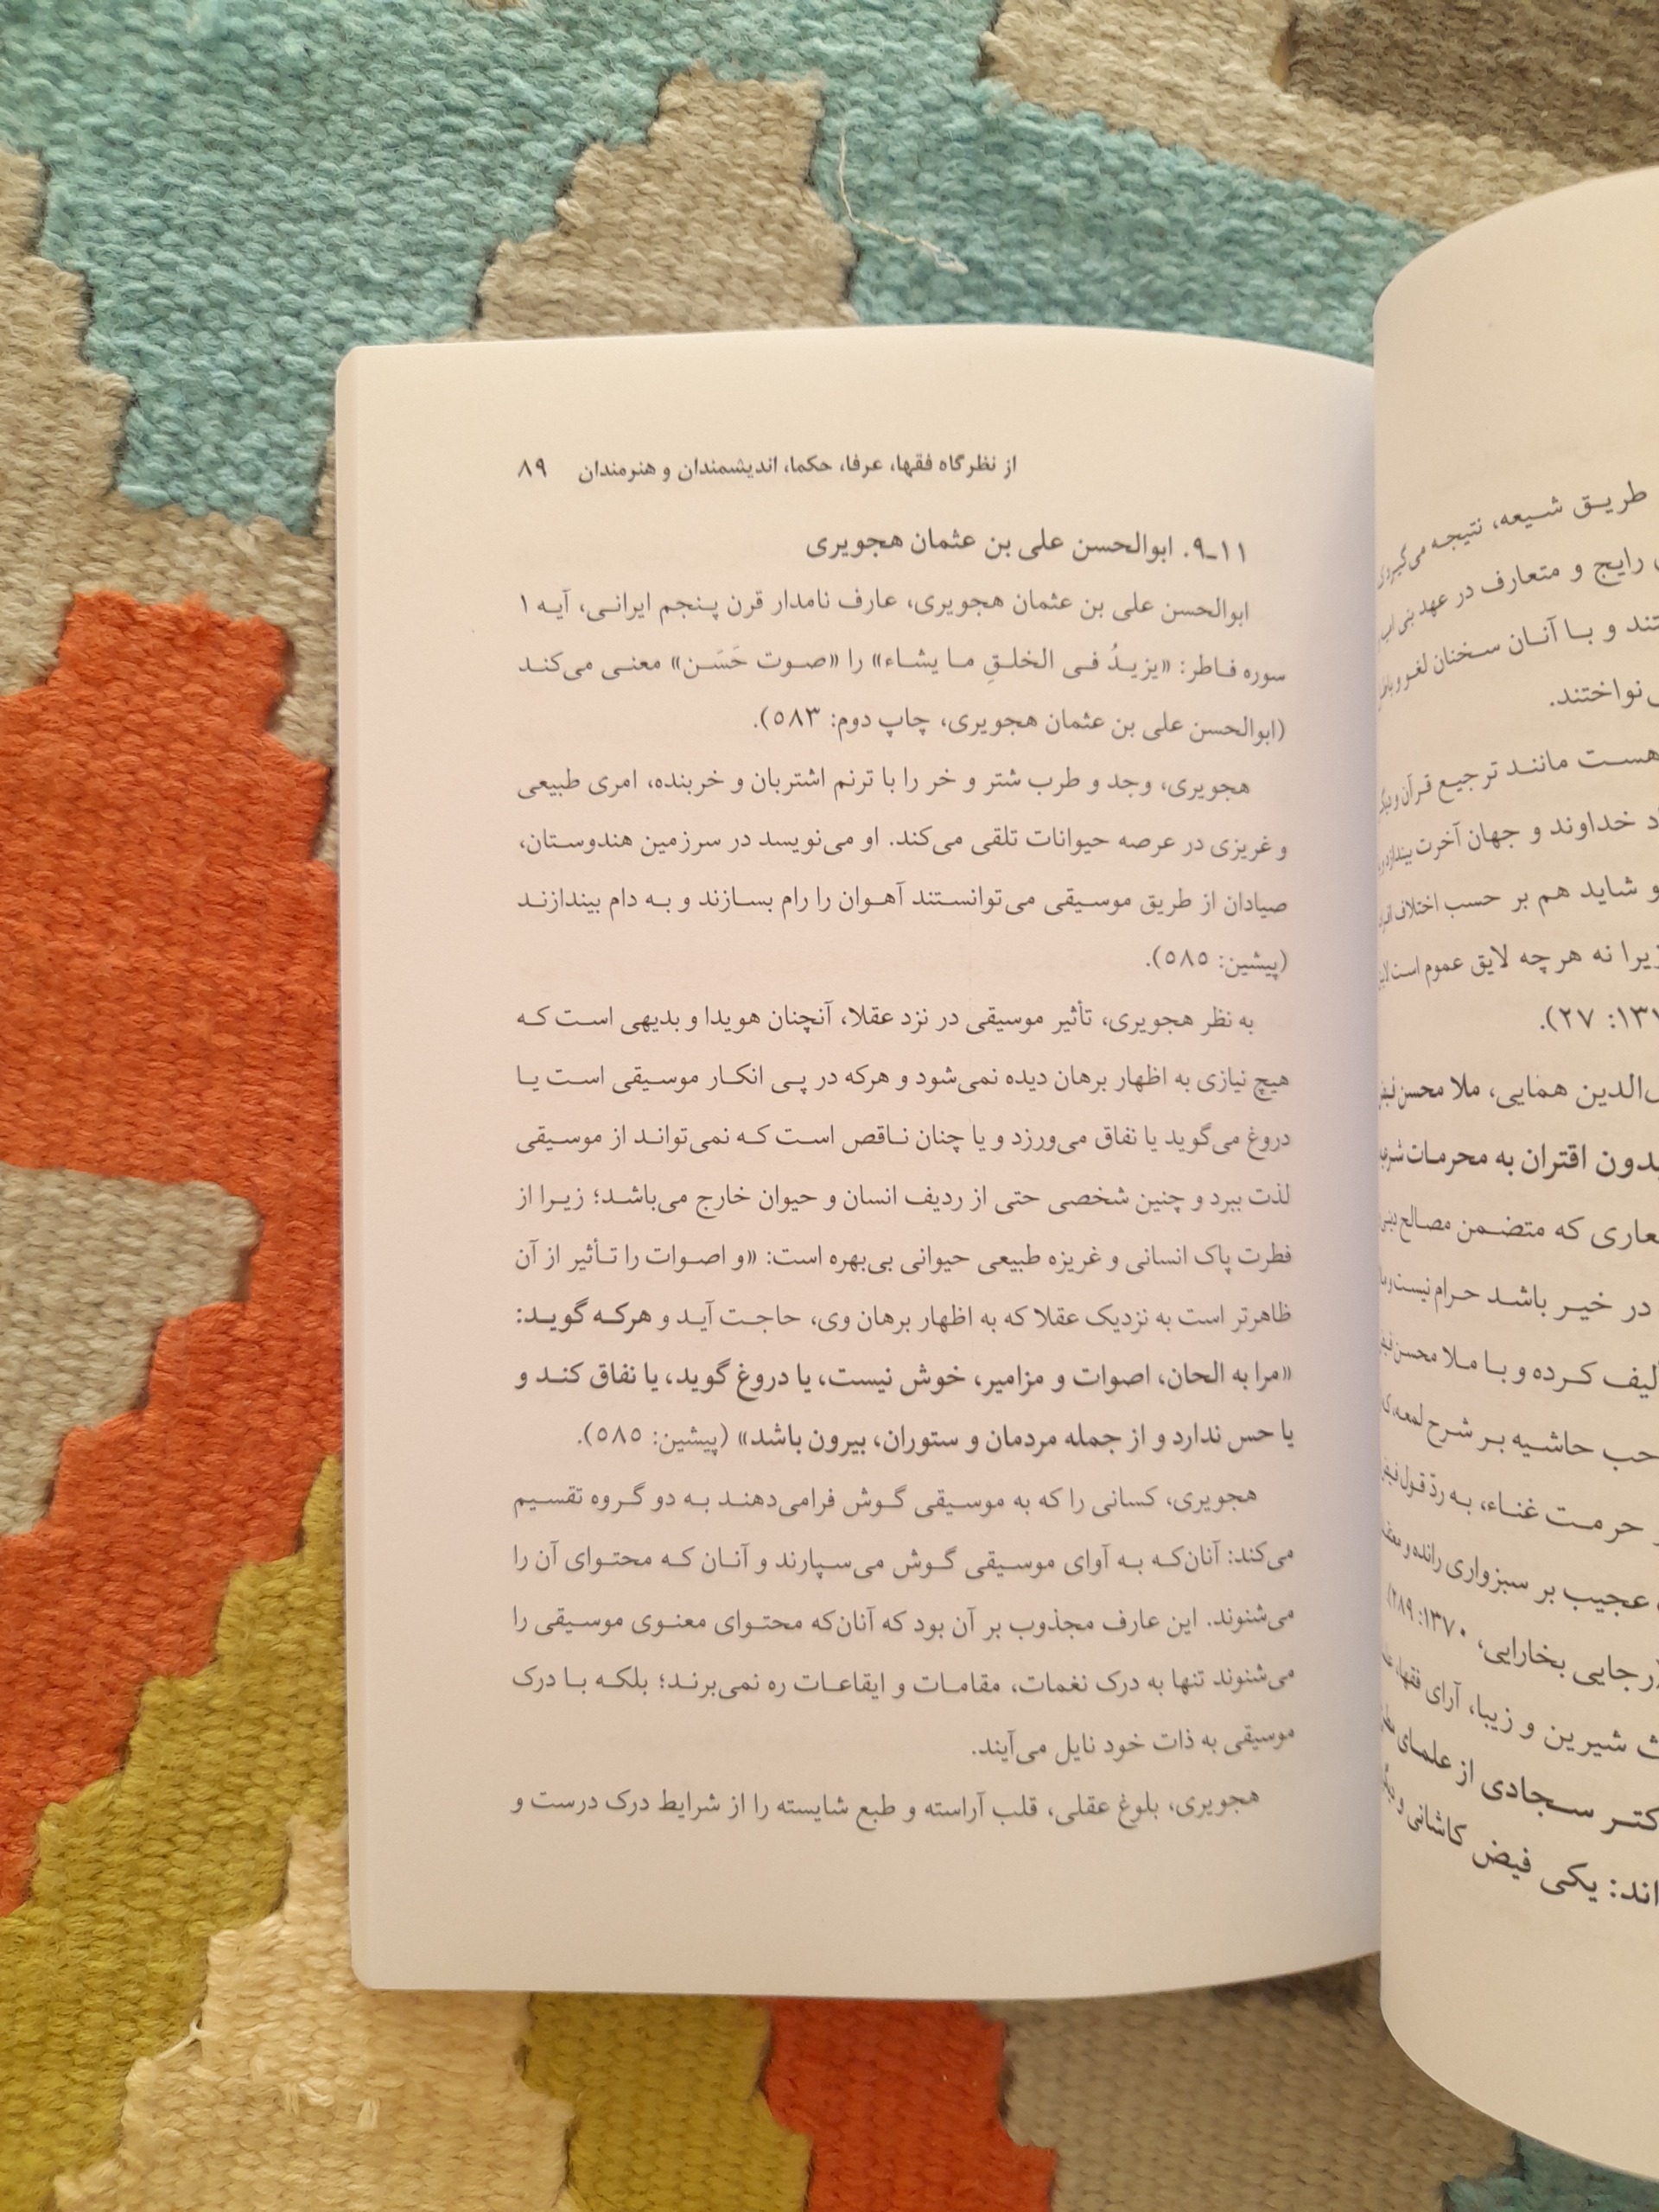 از نظرگاه فقها، عرفا، حکما، اندیشمندان و هنرمندان ۸۹
۱۱ـ۹. ابوالحسن علی بن عثمان هجویری
ابوالحسن علی بن عثمان هجویری، عارف نامدار قرن پنجم ایرانی، آیه ۱
سوره فاطر: «یزیدُ فی الخلقِ ما یشاء» را «صوت حَسَن» معنی می‌کند
(ابوالحسن علی بن عثمان هجویری، چاپ دوم: ۵۸۳).
هجویری، وجد و طرب شتر و خر را با ترنم اشتربان و خربنده، امری طبیعی
و غریزی در عرصه حیوانات تلقی می‌کند. او می‌نویسد در سرزمین هندوستان،
صیادان از طریق موسیقی می‌توانستند آهوان را رام بسازند و به دام بیندازند
(پیشین: ۵۸۵).
به نظر هجویری، تأثیر موسیقی در نزد عقلا، آنچنان هویدا و بدیهی است که
هیچ نیازی به اظهار برهان دیده نمی‌شود و هرکه در پی انکار موسیقی است یا
دروغ می‌گوید یا نفاق می‌ورزد و یا چنان ناقص است که نمی‌تواند از موسیقی
لذت ببرد و چنین شخصی حتی از ردیف انسان و حیوان خارج می‌باشد؛ زیرا از
فطرت پاک انسانی و غریزه طبیعی حیوانی بی‌بهره است: «و اصوات را تأثیر از آن
ظاهرتر است به نزدیک عقلا که به اظهار برهان وی، حاجت آید و هرکه گوید:
«مرا به الحان، اصوات و مزامیر، خوش نیست، یا دروغ گوید، یا نفاق کند و
یا حس ندارد و از جمله مردمان و ستوران، بیرون باشد» (پیشین: ۵۸۵).
هجویری، کسانی را که به موسیقی گوش فرامی‌دهند به دو گروه تقسیم
می‌کند: آنان‌که به آوای موسیقی گوش می‌سپارند و آنان که محتوای آن را
می‌شنوند. این عارف مجذوب بر آن بود که آنان‌که محتوای معنوی موسیقی را
می‌شنوند تنها به درک نغمات، مقامات و ایقاعات ره نمی‌برند؛ بلکه با درک
موسیقی به ذات خود نایل می‌آیند.
هجویری، بلوغ عقلی، قلب آراسته و طبع شایسته را از شرایط درک درست و
طریق شیعه، نتیجه
رایج و متعارف در عهد
و با آنان سخنان لغو
نواختند.
هست مانند ترجیع قرآن
خداوند و جهان آخرت
و شاید هم بر حسب اختلاف
نه هر چه لایق عموم است
۲۷).
همایی، ملا محسن
اقتران به محرمات
که متضمن مصالح
در خیر باشد حرام نیست
کرده و با ملا محسن
حاشیه بر شرح لمعه،
حرمت غناء، به ردّ قول
عجیب بر سبزواری رانده
جایی بخارایی، ۱۳۷۰: ۲۸۹
شیرین و زیبا، آرای فقها،
سجادی از علمای
یکی فیض کاشانی و